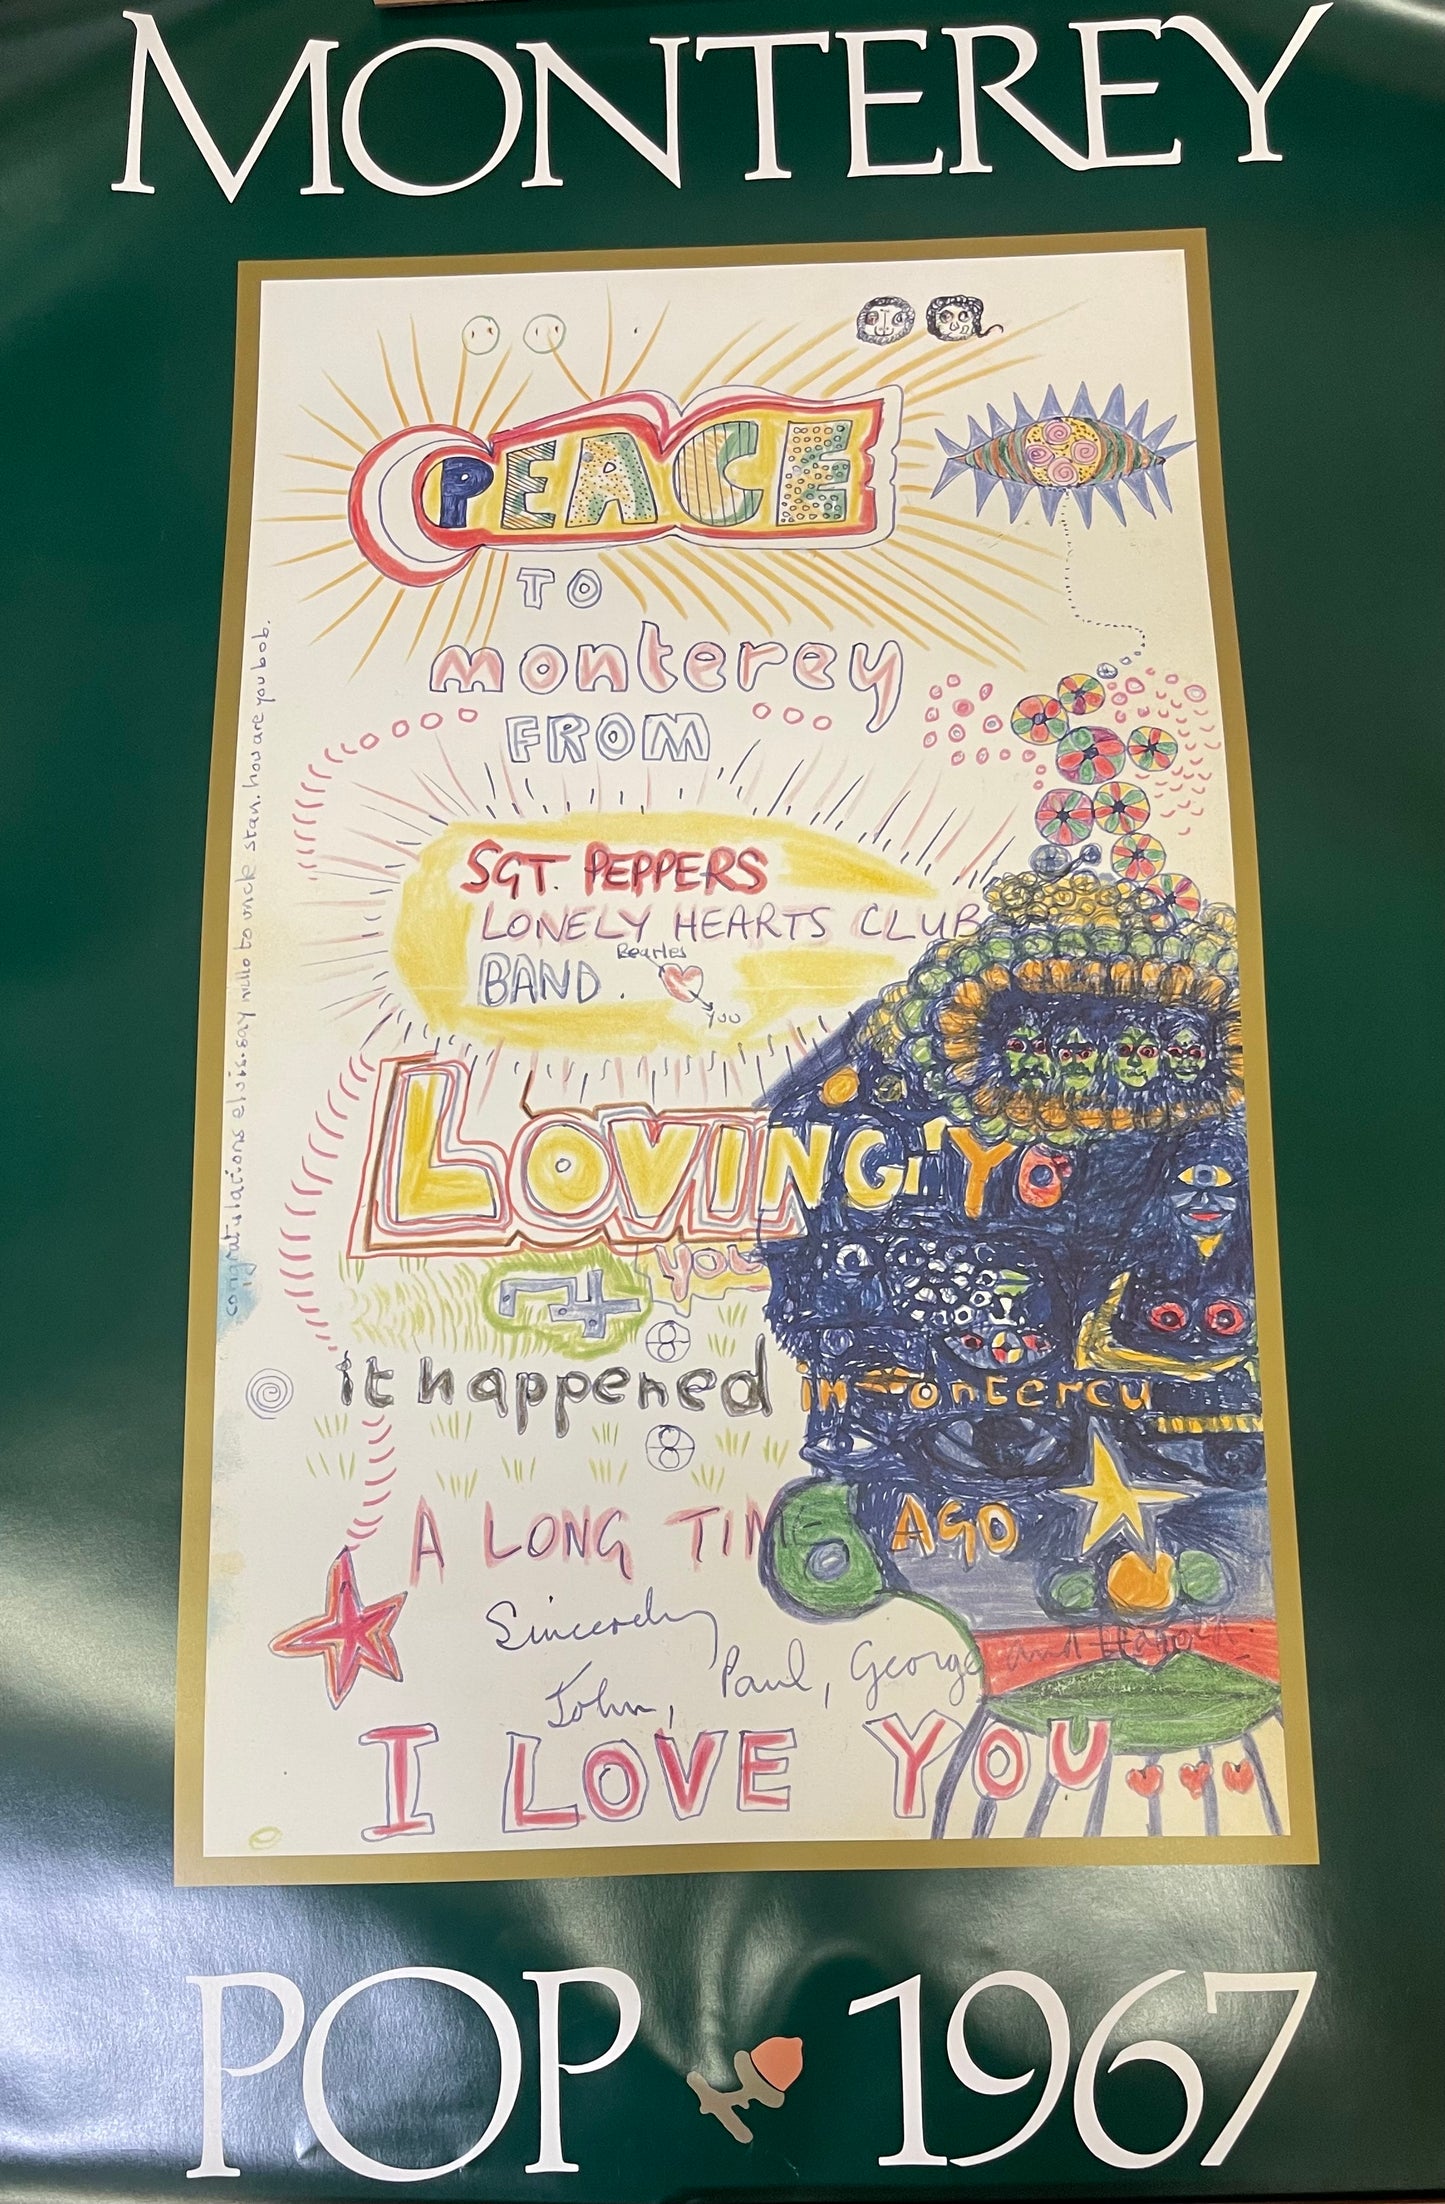 MONTEREY
PEACE
TO
monterey
FROM
SGT. PEPPERS
LONELY HEARTS CLUB
BAND.
Beatles
YOU
LOVING YO
YOU
it happened in monterey
A LONG TIME AGO
Sincerely
John, Paul, George and Harold.
I LOVE YOU
congratulations elvis. say hello to uncle stan. how are you bob.
POP 1967